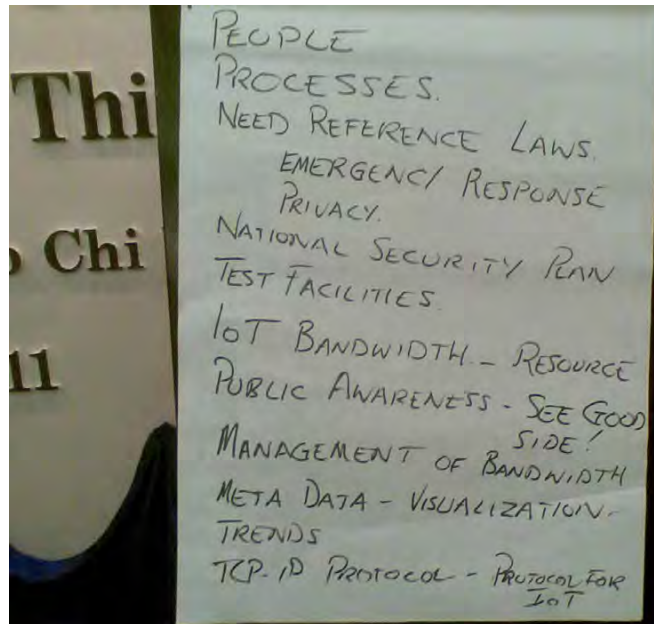 Thi
o Chi
11
PEOPLE
PROCESSES.
NEED REFERENCE LAWS.
EMERGENCY RESPONSE
PRIVACY.
NATIONAL SECURITY PLAN
TEST FACILITIES.
IOT BANDWIDTH - RESOURCE
PUBLIC AWARENESS - SEE GOOD
SIDE!
MANAGEMENT OF BANDWIDTH
META DATA - VISUALIZATION -
TRENDS
TCP-IP PROTOCOL - PROTOCOL FOR
IOT